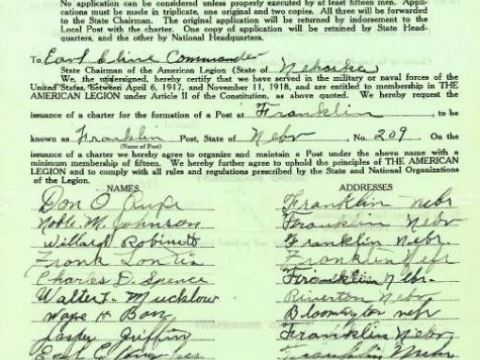 No application can be considered unless properly executed by at least fifteen men. Appli-
cations must be made in triplicate, one original and two copies. All three will be forwarded
to the State Chairman. The original application will be returned by indorsement to the
Local Post with charter. One copy of application will be retained by State Head-
quarters, and the other by National Headquarters.
To Earl Cline Commander
State Chairman of the American Legion (State of Nebraska
We, the undersigned, hereby certify that we have served in the military or naval forces of the
United States, between April 6, 1917, and November 11, 1918, and are entitled to membership in THE
AMERICAN LEGION under Article II of the Constitution, as above quoted. We hereby request the
issuance of a charter for the formation of a Post at Franklin to be
known as Franklin Post, State of Nebr No. 209 On the
(Name of Post)
issuance of a charter we hereby agree to organize and maintain a Post under the above name with a
minimum membership of fifteen. We hereby further agree to uphold the principles of THE AMERICAN
LEGION and to comply with all rules and regulations prescribed by the State and National Organizations
of the Legion.
NAMES ADDRESSES
Don O Franklin Nebr
Noble M. Johnson Franklin Nebr
Willard Robinett Franklin Nebr.
Frank Franklin Nebr
Charles D. Spence Franklin Nebr.
Walter F. Mucklow Riverton Nebr
Bloomington nebr
Griffin Franklin Nebr
Earl C.